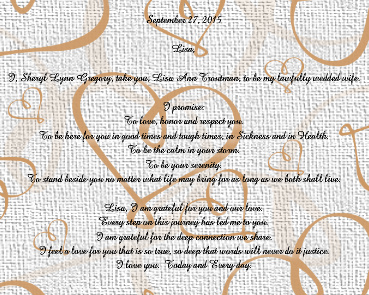 September 27, 2015
Lisa,
I, Sheryl Lynn Gregory, take you, Lisa Ann Troutman, to be my lawfully wedded wife.
I promise:
To love, honor and respect you.
To be here for you in good times and tough times, in Sickness and in Health.
To be the calm in your storm.
To be your serenity.
To stand beside you no matter what life may bring for as long as we both shall live.
Lisa, I am grateful for you and our love.
Every step on this journey has led me to you.
I am grateful for the deep connection we share.
I feel a love for you that is so true, so deep that words will never do it justice.
I love you. Today and Every day.